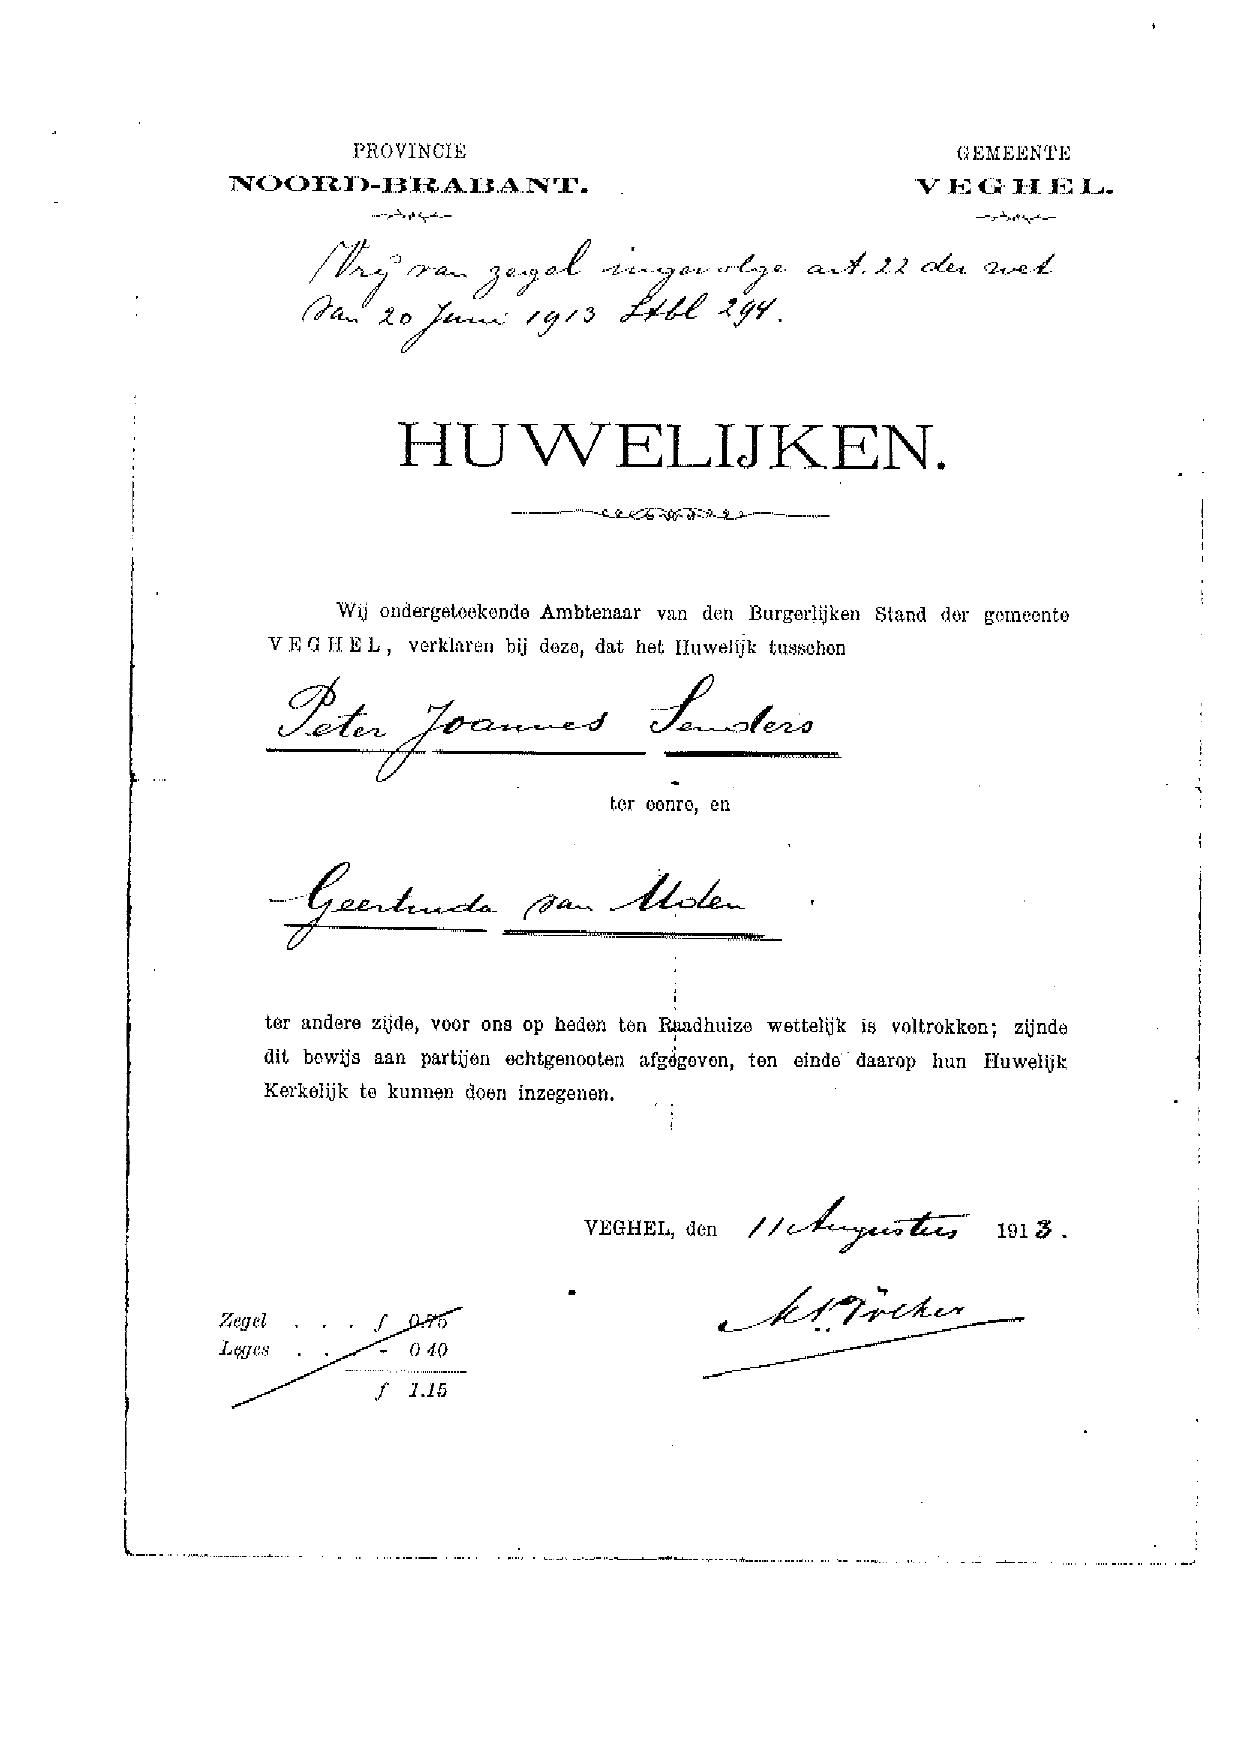 PROVINCIE
NOORD-BRABANT.
GEMEENTE
VEGHEL.
Vrij van zegel ingevolge art. 22 der wet
van 20 Juni 1913 Stbl 294.
HUWELIJKEN.
Wij ondergeteekende Ambtenaar van den Burgerlijken Stand der gemeente
VEGHEL, verklaren bij deze, dat het Huwelijk tusschen
Peter Joannes Senders
ter eenre, en
Geertruda van Uden
ter andere zijde, voor ons op heden ten Raadhuize wettelijk is voltrokken; zijnde
dit bewijs aan partijen echtgenooten afgegeven, ten einde daarop hun Huwelijk
Kerkelijk te kunnen doen inzegenen.
VEGHEL, den 11 Augustus 1913.
Zegel . . . f 0.75
Leges . . . - 0 40
f 1.15